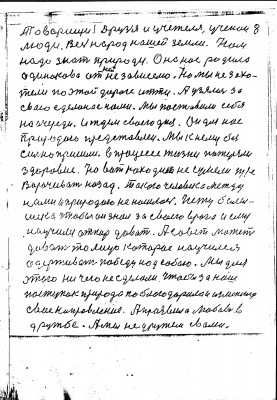 Товарищи! Друзья и учетеля, ученои 8
люди. Весь народ нашей земли. Нам
надо знать природу. Она нас родила
одинакова от нас не зависело. Но мы не захо-
тели по этой дороге итти. А узяли за
своего сделанае нами. Мы поставили себя
на очереди. И ждем своего дня. Он для нас
природаю представлен. Мы к нему бы
сильно пришли. в процессе жизни потеряли
здоровие. Но вот находит не сумели пре
ворочивать назад. Такого человека между
нами и природаю не нашлось. Чему боли-
шися чтобы он знал за своего врага и ему
научили откар доват. А совет может
доват то лицо которае научился
одерживат победу над собою. Мы для
этого ни чего не сделали. Чтобы за наш
поступак природа поблогодарила изменила
свае направление. А праявила любовь в
дружбе. А мы не дружем с вами.